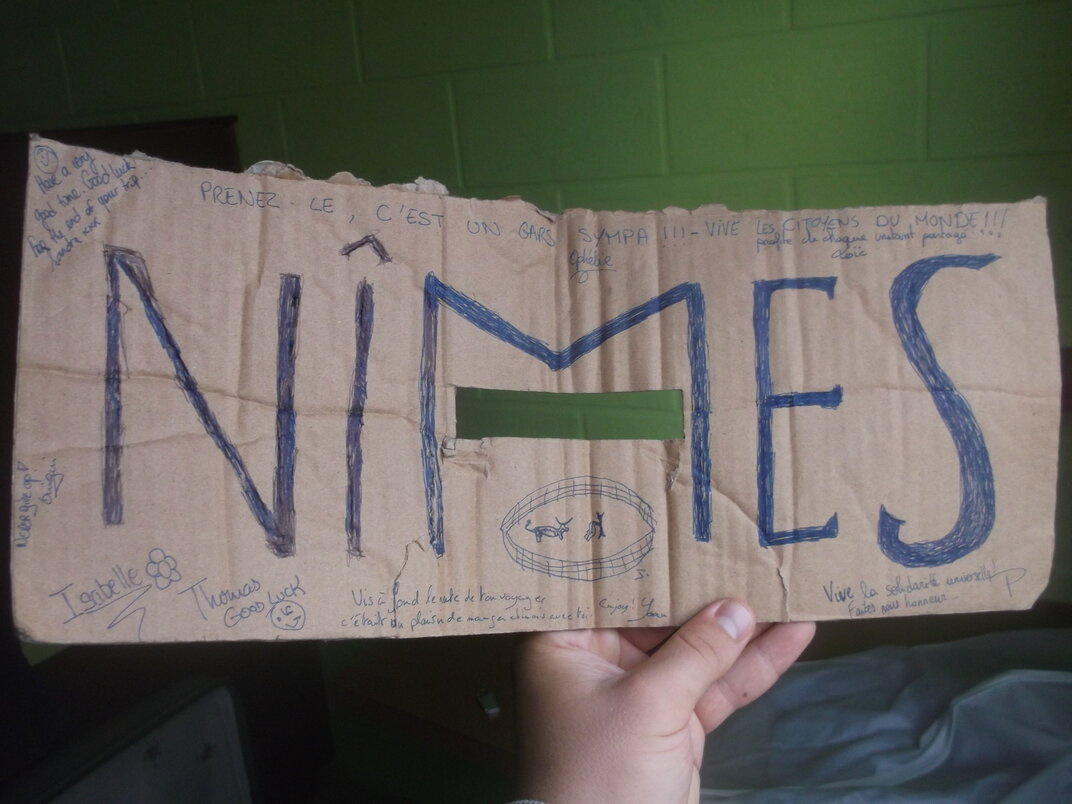 Have a very
good time. Good luck
for the end of your trip...
Sandra xxx!
PRENEZ-LE, C'EST UN GARS SYMPA !!! - VIVE LES CITOYENS DU MONDE!!!
profite de chaque instant partagé !!!
Loïc
Ophélie
NÎMES
Never give up!
Isabelle
Thomas
GOOD LUCK
Vis à fond le reste de ton voyage
c'était un plaisir de manger chinois avec toi. enjoy! Yoan
J.
Vive la solidarité universelle!
Faites nous honneur...
P